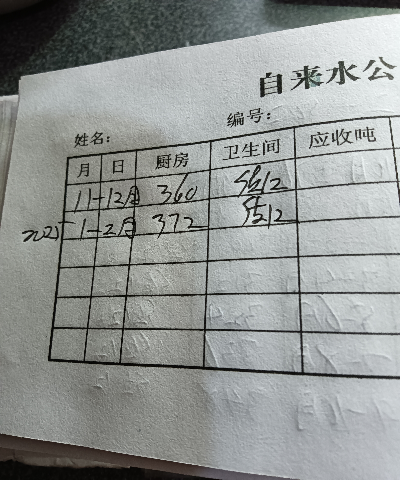 自来水公
编号：
姓名：
月 日 厨房 卫生间 应收吨
11-12月 360
2025 1-2月 372